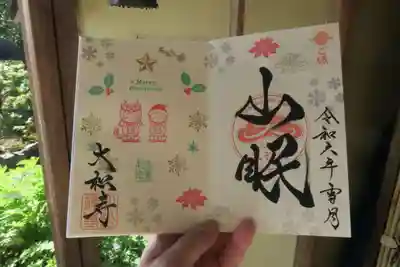 令和六年雪月
山眠
Merry
Christmas
大和寺